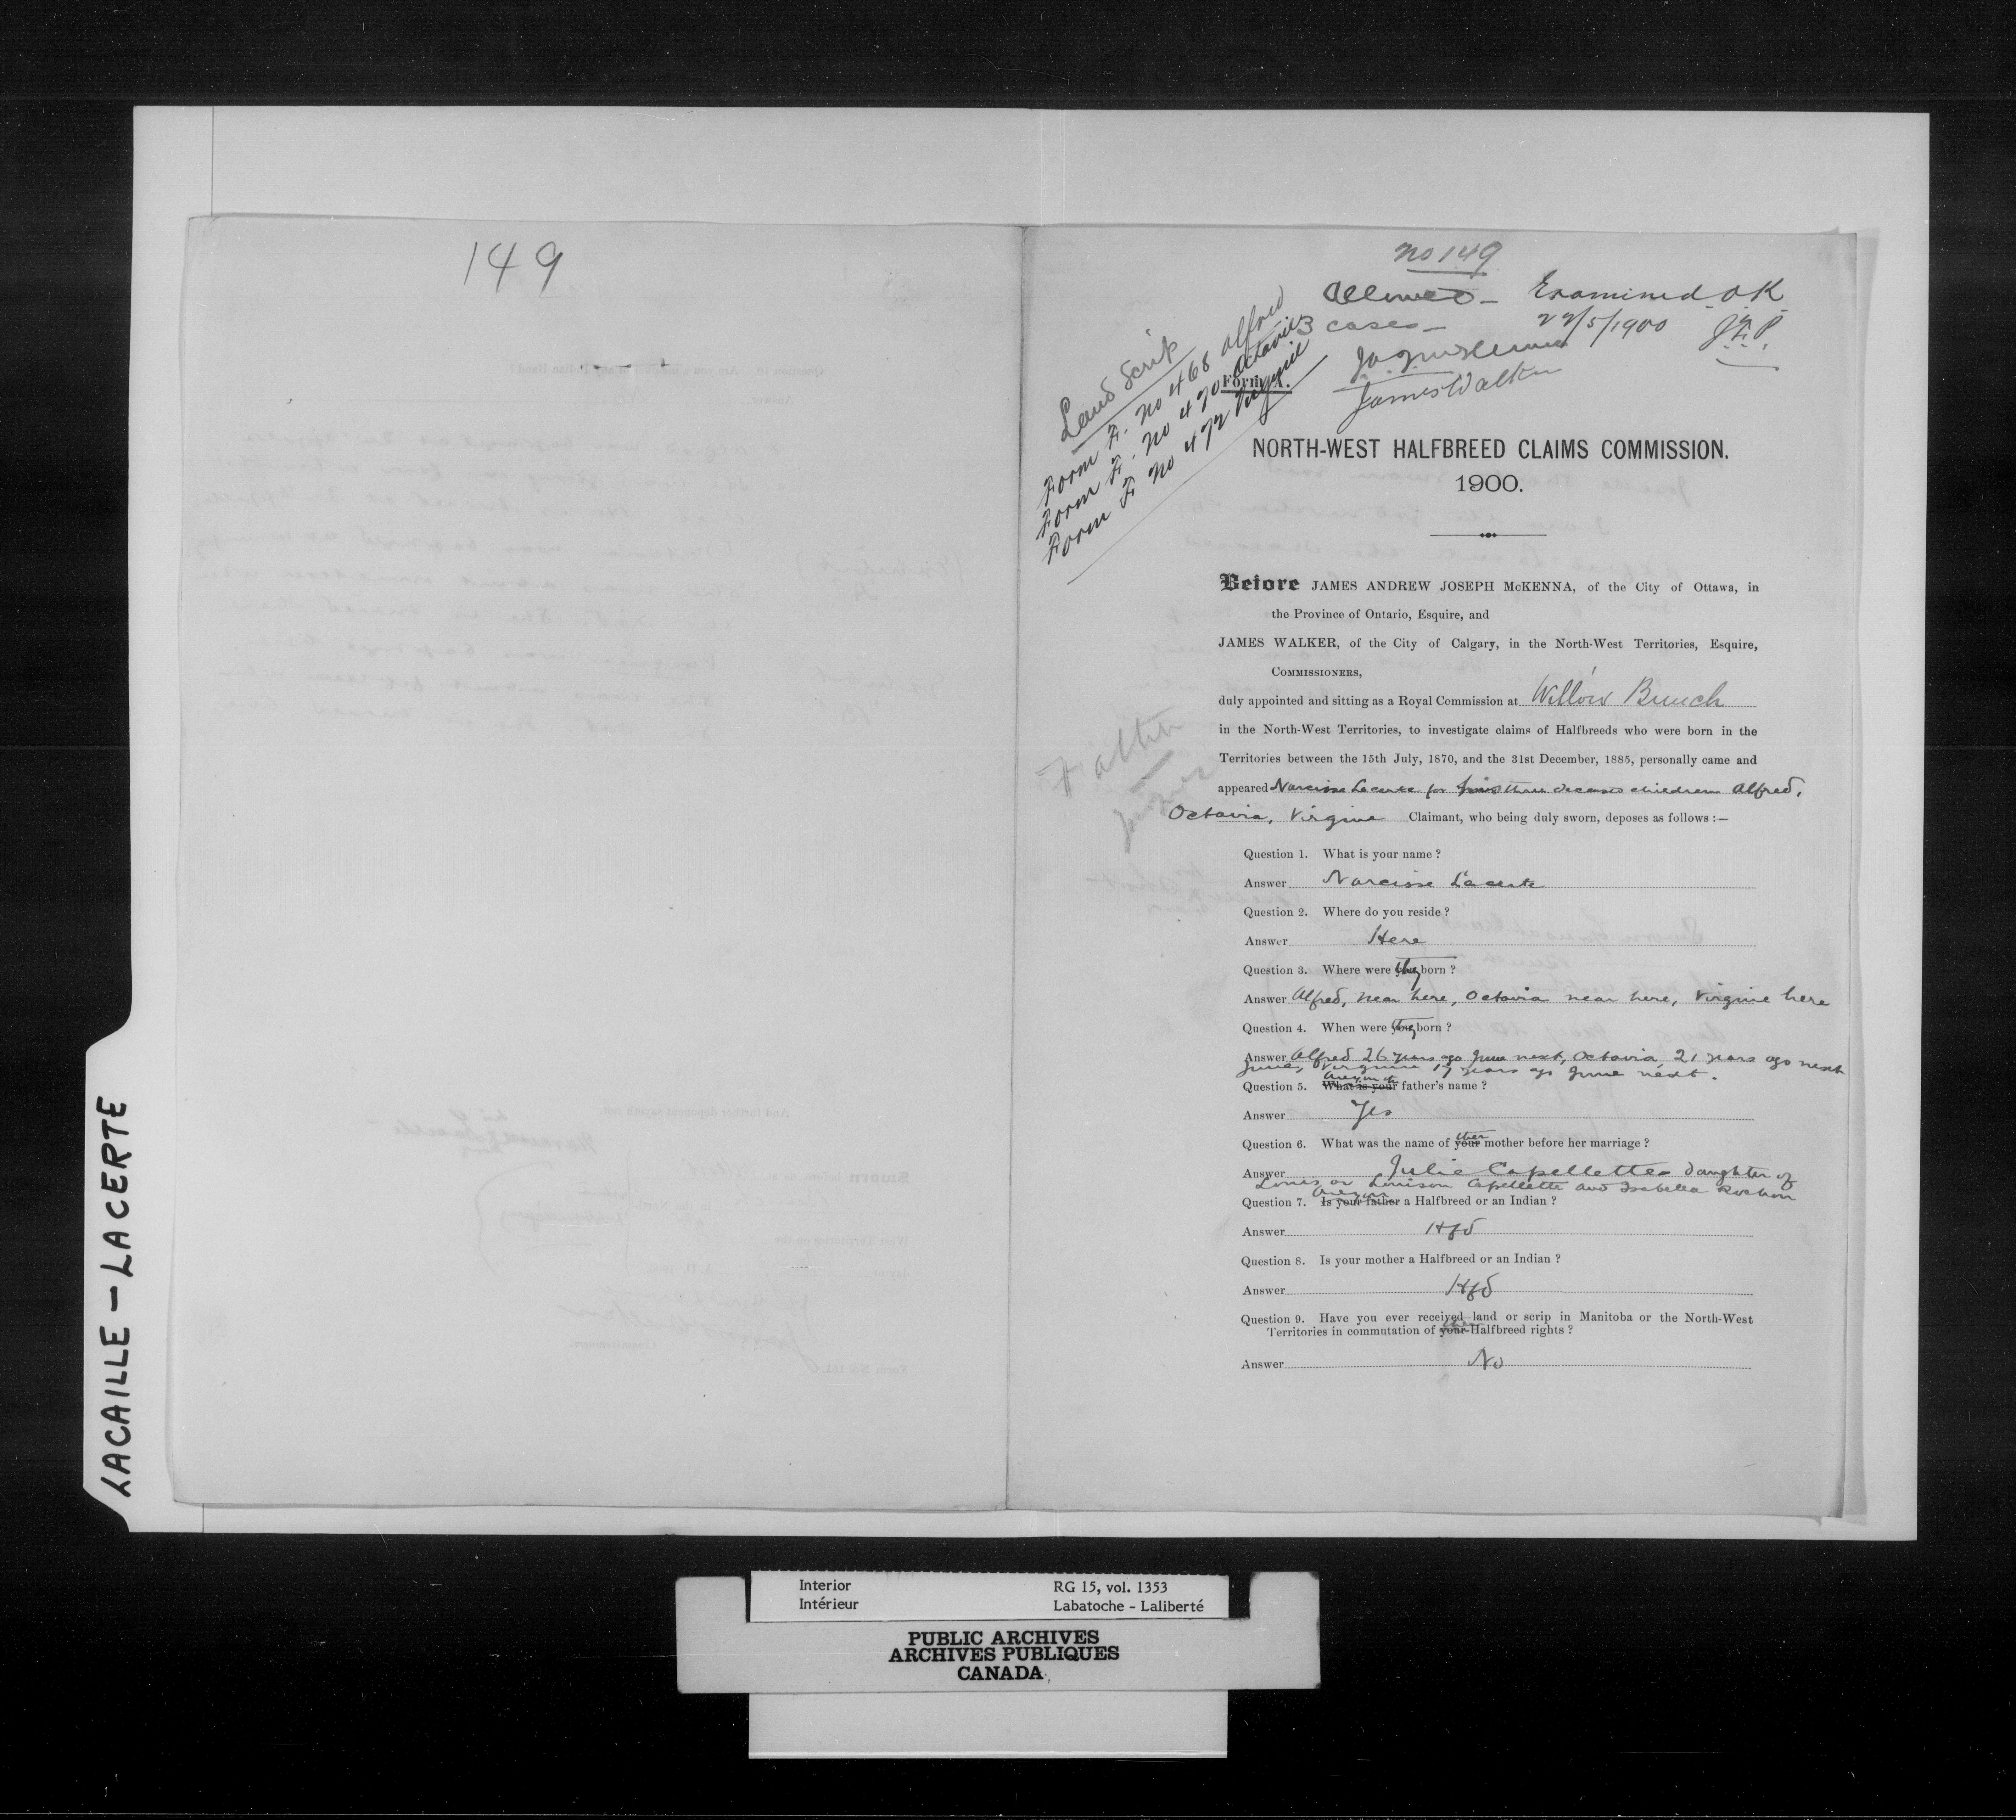 149
no 149
Allowed - Examined O K
3 cases - 22/5/1900 J.F.P.
James Walker
Land Scrip
Form F. No 468 Alfred
Form F. No 470 Octavie
Form F No 472 Virginie
Form A.
NORTH-WEST HALFBREED CLAIMS COMMISSION.
1900.
Before JAMES ANDREW JOSEPH McKENNA, of the City of Ottawa, in
the Province of Ontario, Esquire, and
JAMES WALKER, of the City of Calgary, in the North-West Territories, Esquire,
COMMISSIONERS,
duly appointed and sitting as a Royal Commission at Willow Bunch
in the North-West Territories, to investigate claims of Halfbreeds who were born in the
Territories between the 15th July, 1870, and the 31st December, 1885, personally came and
appeared Narcisse Lacerte for his three deceased children Alfred,
Octavia, Virginie Claimant, who being duly sworn, deposes as follows :—
Father
Question 1. What is your name ?
Answer Narcisse Lacerte
Question 2. Where do you reside ?
Answer Here
Question 3. Where were they born ?
Answer Alfred, near here, Octavia near here, Virginie here
Question 4. When were they born ?
Answer Alfred 26 years ago June next, Octavia 21 years ago next
June, Virginie 17 years ago June next.
Question 5. What is your Are you the father's name ?
Answer Yes
Question 6. What was the name of your their mother before her marriage ?
Answer Julie Capellette - daughter of
Louis or Louison Capellette and Isabella Rochon
Question 7. Is your father Are you a Halfbreed or an Indian ?
Answer Hfd
Question 8. Is your mother a Halfbreed or an Indian ?
Answer Hfd
Question 9. Have you ever received land or scrip in Manitoba or the North-West
Territories in commutation of your their Halfbreed rights ?
Answer No
LACAILLE - LACERTE
Interior RG 15, vol. 1353
Intérieur Labatoche - Laliberté
PUBLIC ARCHIVES
ARCHIVES PUBLIQUES
CANADA